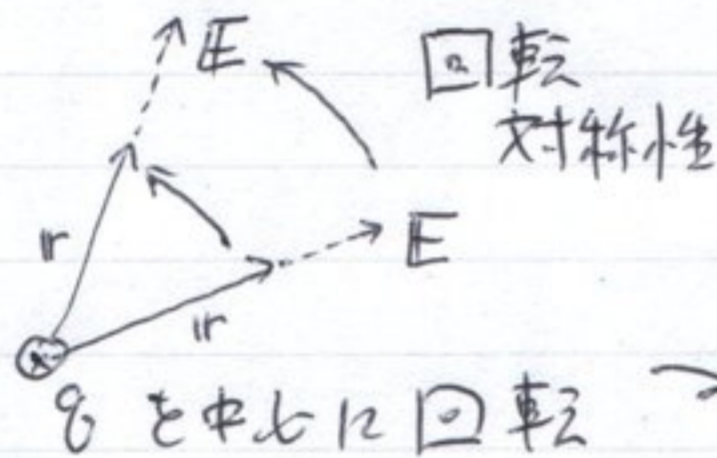 E
回転
対称性
E
r
r
q を中心に回転